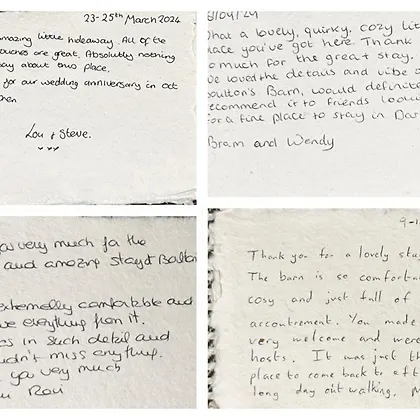 23-25th March 2024
amazing little hideaway. All of the
ouches are great. Absolutely nothing
say about this place.
for our wedding anniversary in oct
Lou & Steve.
What a lovely, quirky, cozy lit
lace you've got here. Thank
o much for the great stay.
e loved the details and vibe o
oulton's Barn, would definite
ecommend it to friends lookin
or a fine place to stay in Dar
Bram and Wendy
you very much for the
and amazing stay at Bolton
extremelly comfortable and
ve everything from it.
as in such detail and
dn't miss anything.
ya very much
9-1
Thank you for a lovely sta
The barn is so comforta
cosy and just full of
accoutrement. You made
very welcome and were
hosts. It was just th
place to come back to aft
long day out walking.